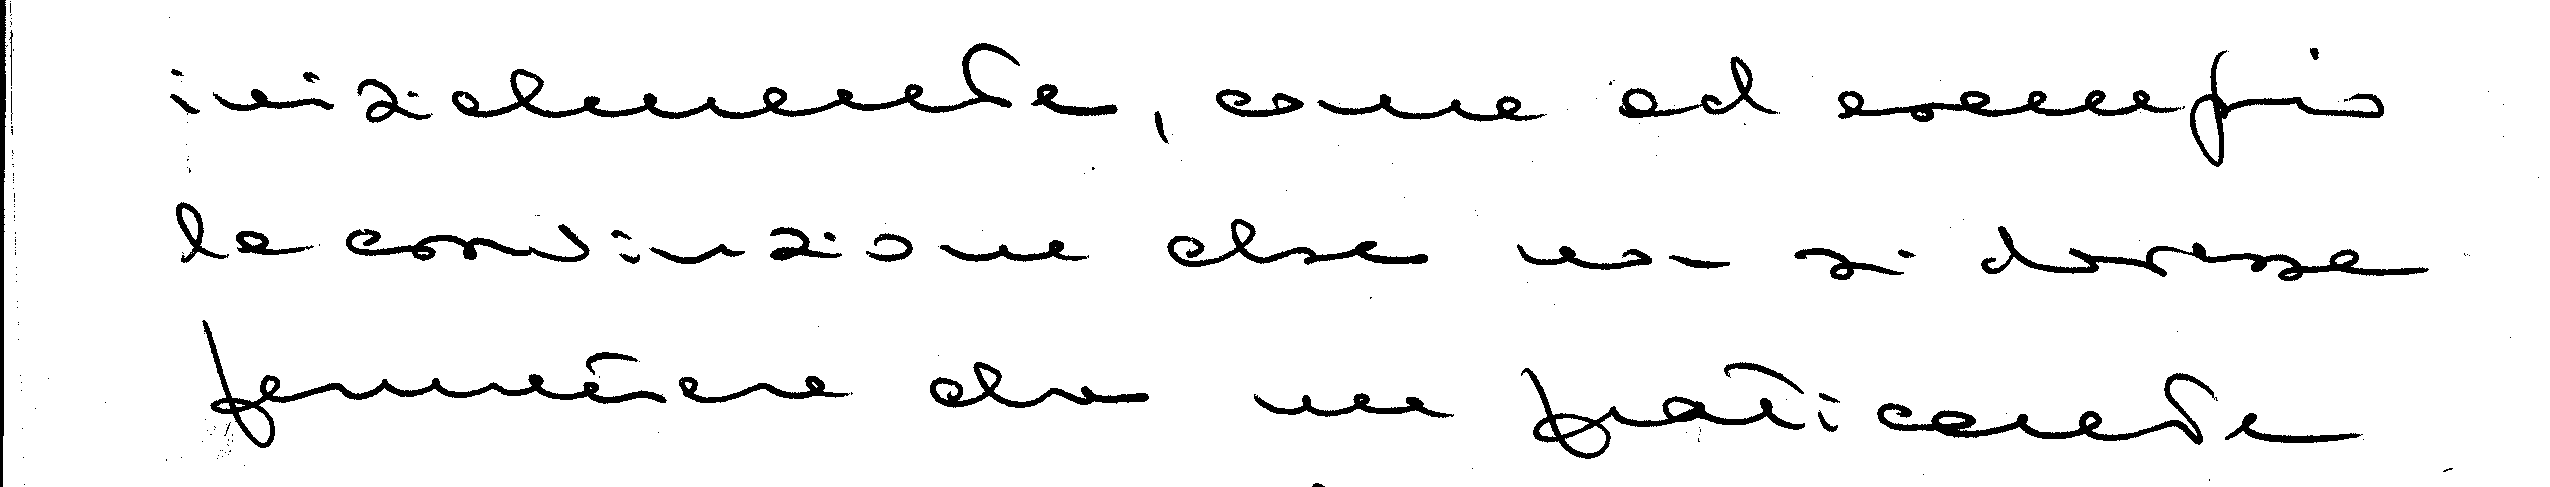 inizialmente, come ad esempio
la convinzione che non si dovesse
permettere che un praticante